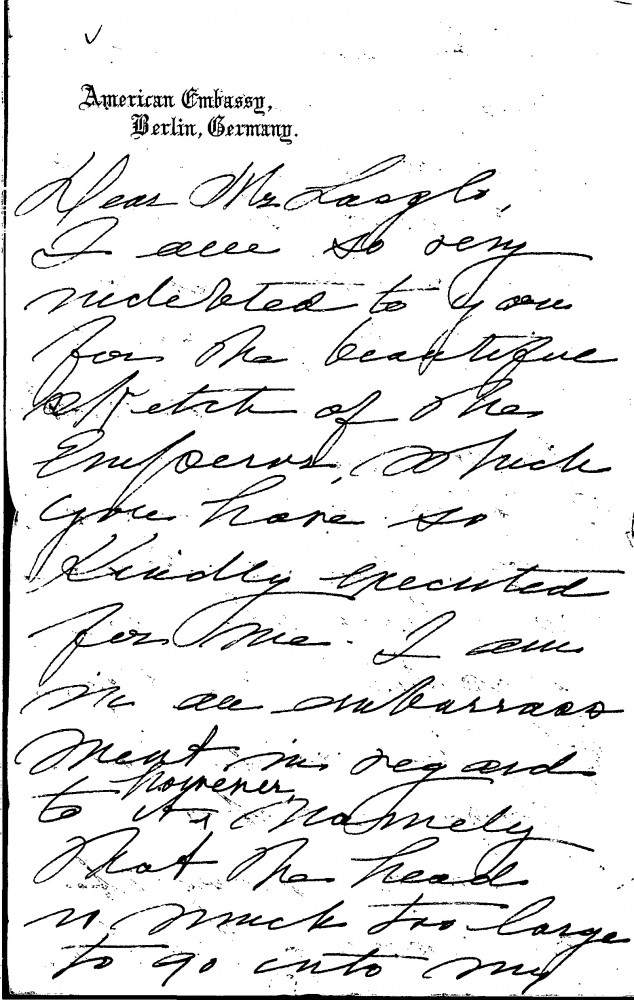 American Embassy,
Berlin, Germany.
Dear Mr Laszlo,
I am so very
indebted to you
for the beautiful
sketch of the
Emperor, which
you have so
kindly executed
for me. I am
in an embarrass
ment in regard
to it, however, namely
that the head
is much too large
to go into my